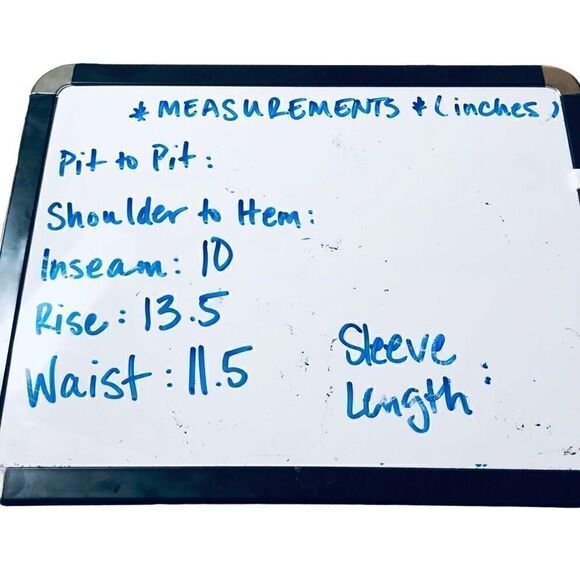 * MEASUREMENTS * (inches)
Pit to Pit:
Shoulder to Hem:
Inseam: 10
Rise: 13.5
Waist: 11.5
Sleeve
Length: